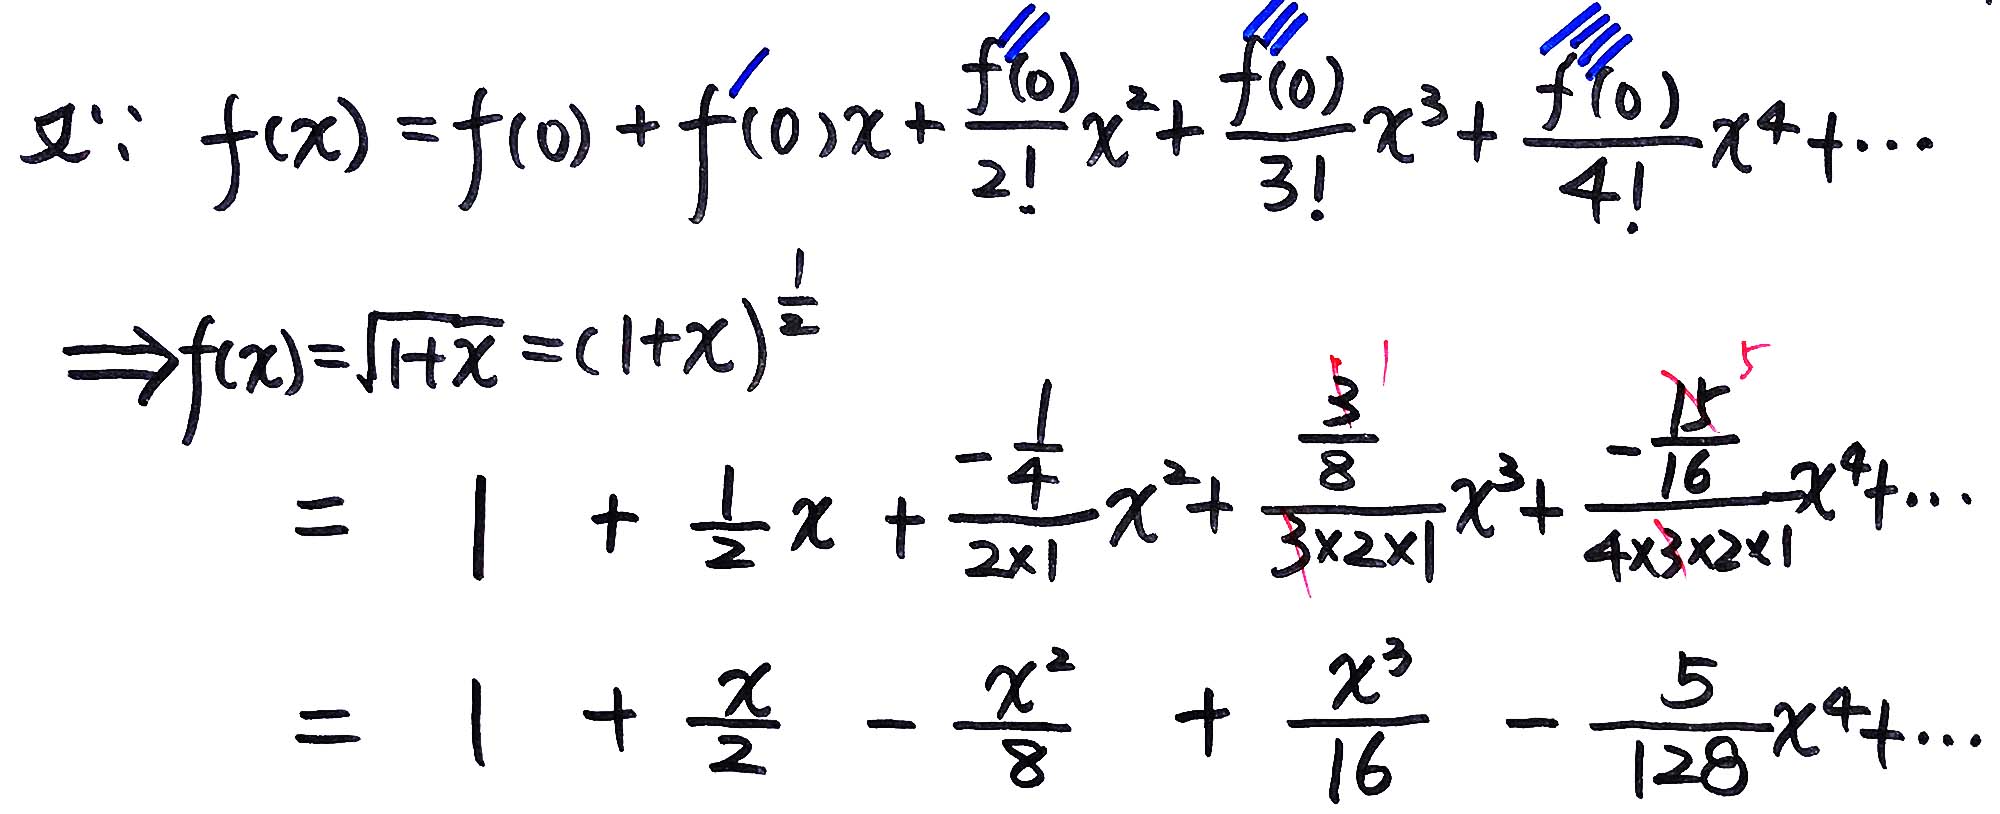 又∵ f(x) = f(0) + f'(0)x + \frac{f''(0)}{2!}x^2 + \frac{f'''(0)}{3!}x^3 + \frac{f''''(0)}{4!}x^4 + ⋯
⟹ f(x) = \sqrt{1+x} = (1+x)^{\frac{1}{2}}
= 1 + \frac{1}{2}x + \frac{-\frac{1}{4}}{2×1}x^2 + \frac{\frac{\cancel{3}^1}{8}}{\cancel{3}×2×1}x^3 + \frac{-\frac{\cancel{15}^5}{16}}{4×\cancel{3}×2×1}x^4 + ⋯
= 1 + \frac{x}{2} - \frac{x^2}{8} + \frac{x^3}{16} - \frac{5}{128}x^4 + ⋯